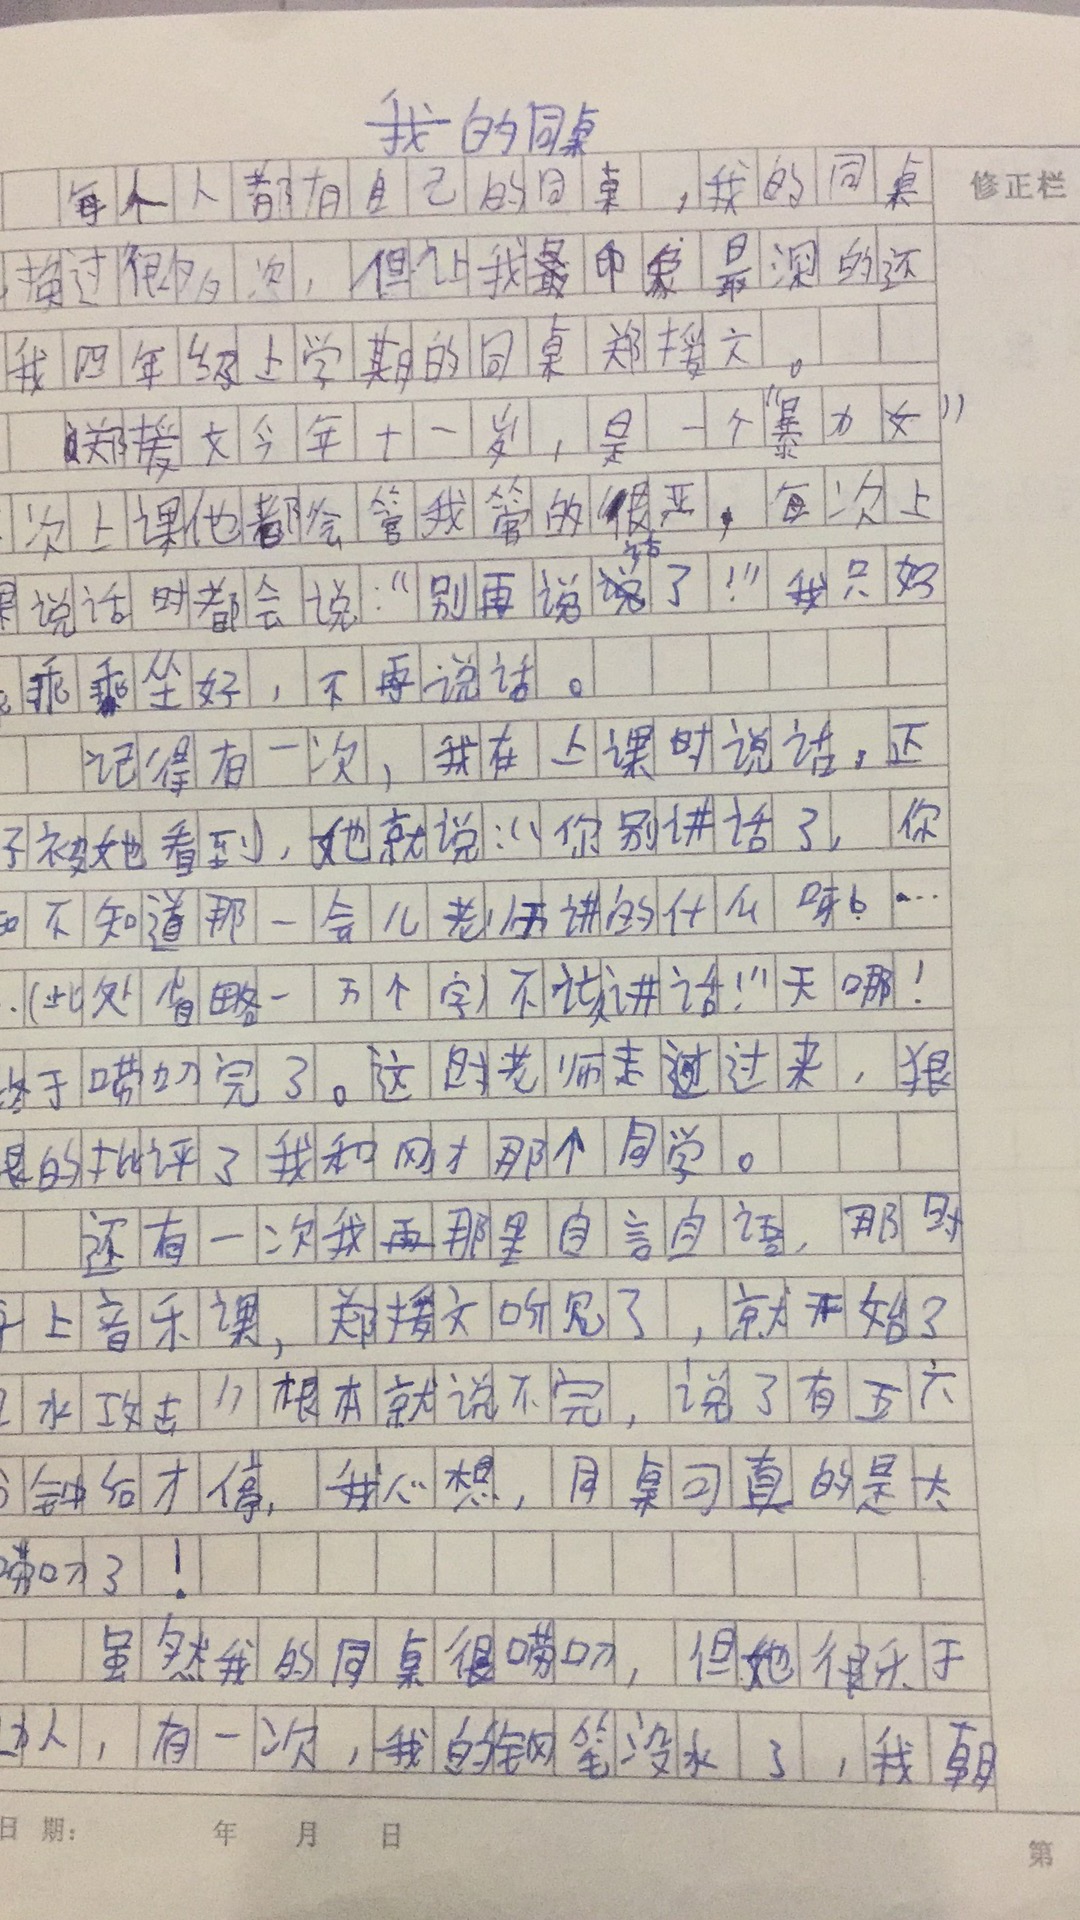 我的同桌
每个人都有自己的同桌，我的同桌
换过很多次，但让我最印象最深的还
我四年级上学期的同桌郑援文。
郑援文今年十一岁，是一个“暴力女”
次上课他都会管我管的很严，每次上
课说话时都会说：“别再说话了！”我只好
乖乖坐好，不再说话。
记得有一次，我在上课时说话，正
子被她看到，她就说：“你别讲话了，你
知不知道那一会儿老师讲的什么呀！…
…（此处省略一万个字）不该讲话！”天哪！
终于唠叨完了。这时老师走过过来，狠
狠的批评了我和刚才那个同学。
还有一次我再那里自言自语，那时
上音乐课，郑援文听见了，就开始了
口水攻击”根本就说不完，说了有五六
分钟给才停，我心想，同桌可真的是太
唠叨了！
虽然我的同桌很唠叨，但她很乐于
助人，有一次，我的钢笔没水了，我朝
修正栏
日期： 年 月 日
第